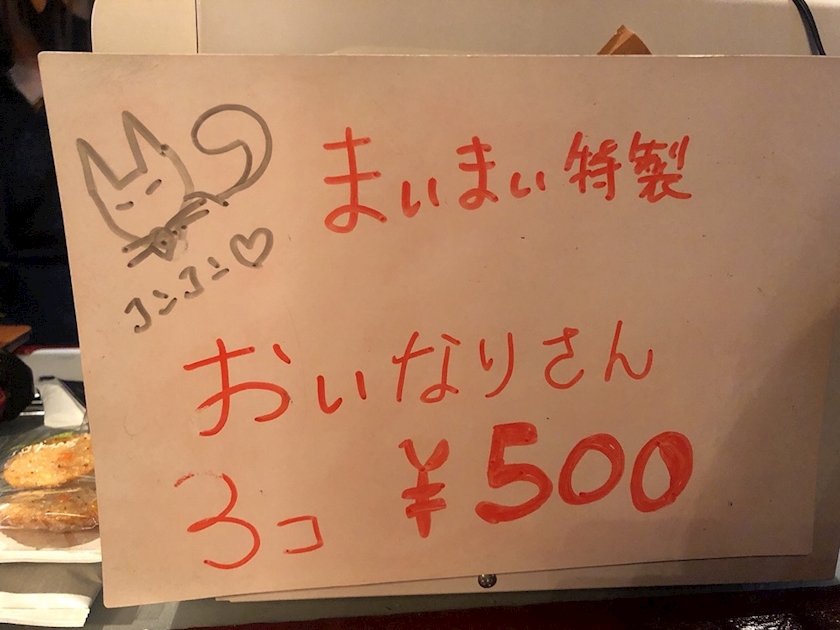 まいまい特製
コンコン♡
おいなりさん
3コ ¥500